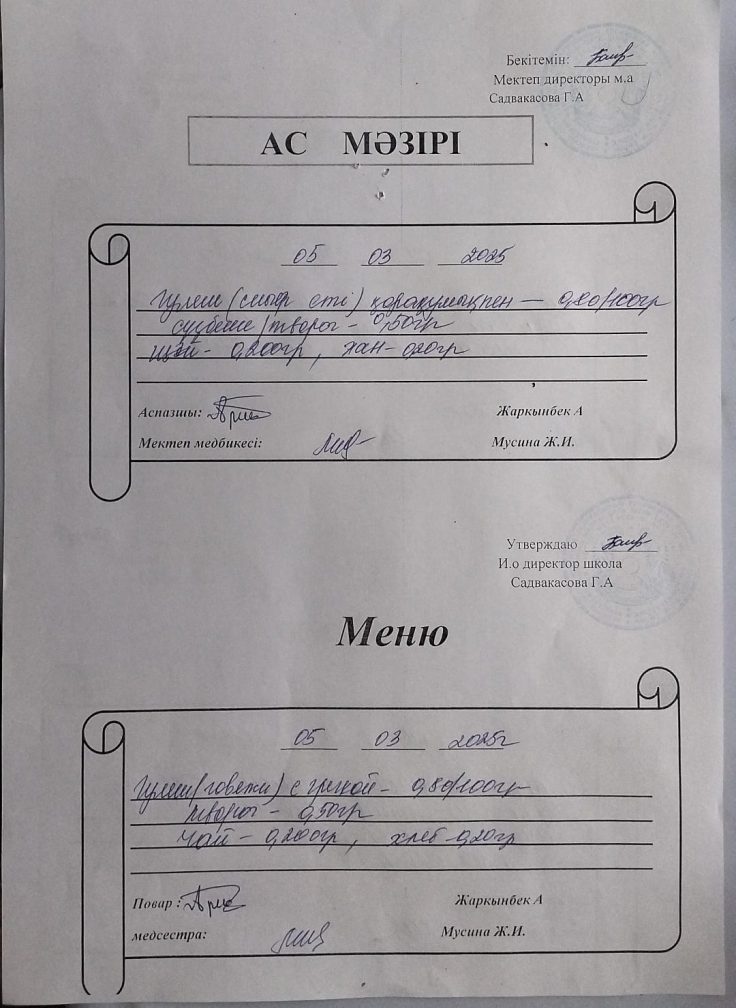 Бекітемін:
Мектеп директоры м.а
Садвакасова Г.А
АС МӘЗІРІ
05 03 2025
Гуляш (сиыр еті) қарақұмықпен — 0,80/100гр
сүзбеше/творог - 0,50гр
Шай - 0,200гр, нан - 0,20гр
Аспазшы: Жаркынбек А
Мектеп медбикесі: Мусина Ж.И.
Утверждаю
И.о директор школа
Садвакасова Г.А
Меню
05 03 2025г
Гуляш (говяжи) с гречкой - 0,80/100гр
творог - 0,50гр
Чай - 0,200гр, хлеб - 0,20гр
Повар : Жаркынбек А
медсестра: Мусина Ж.И.